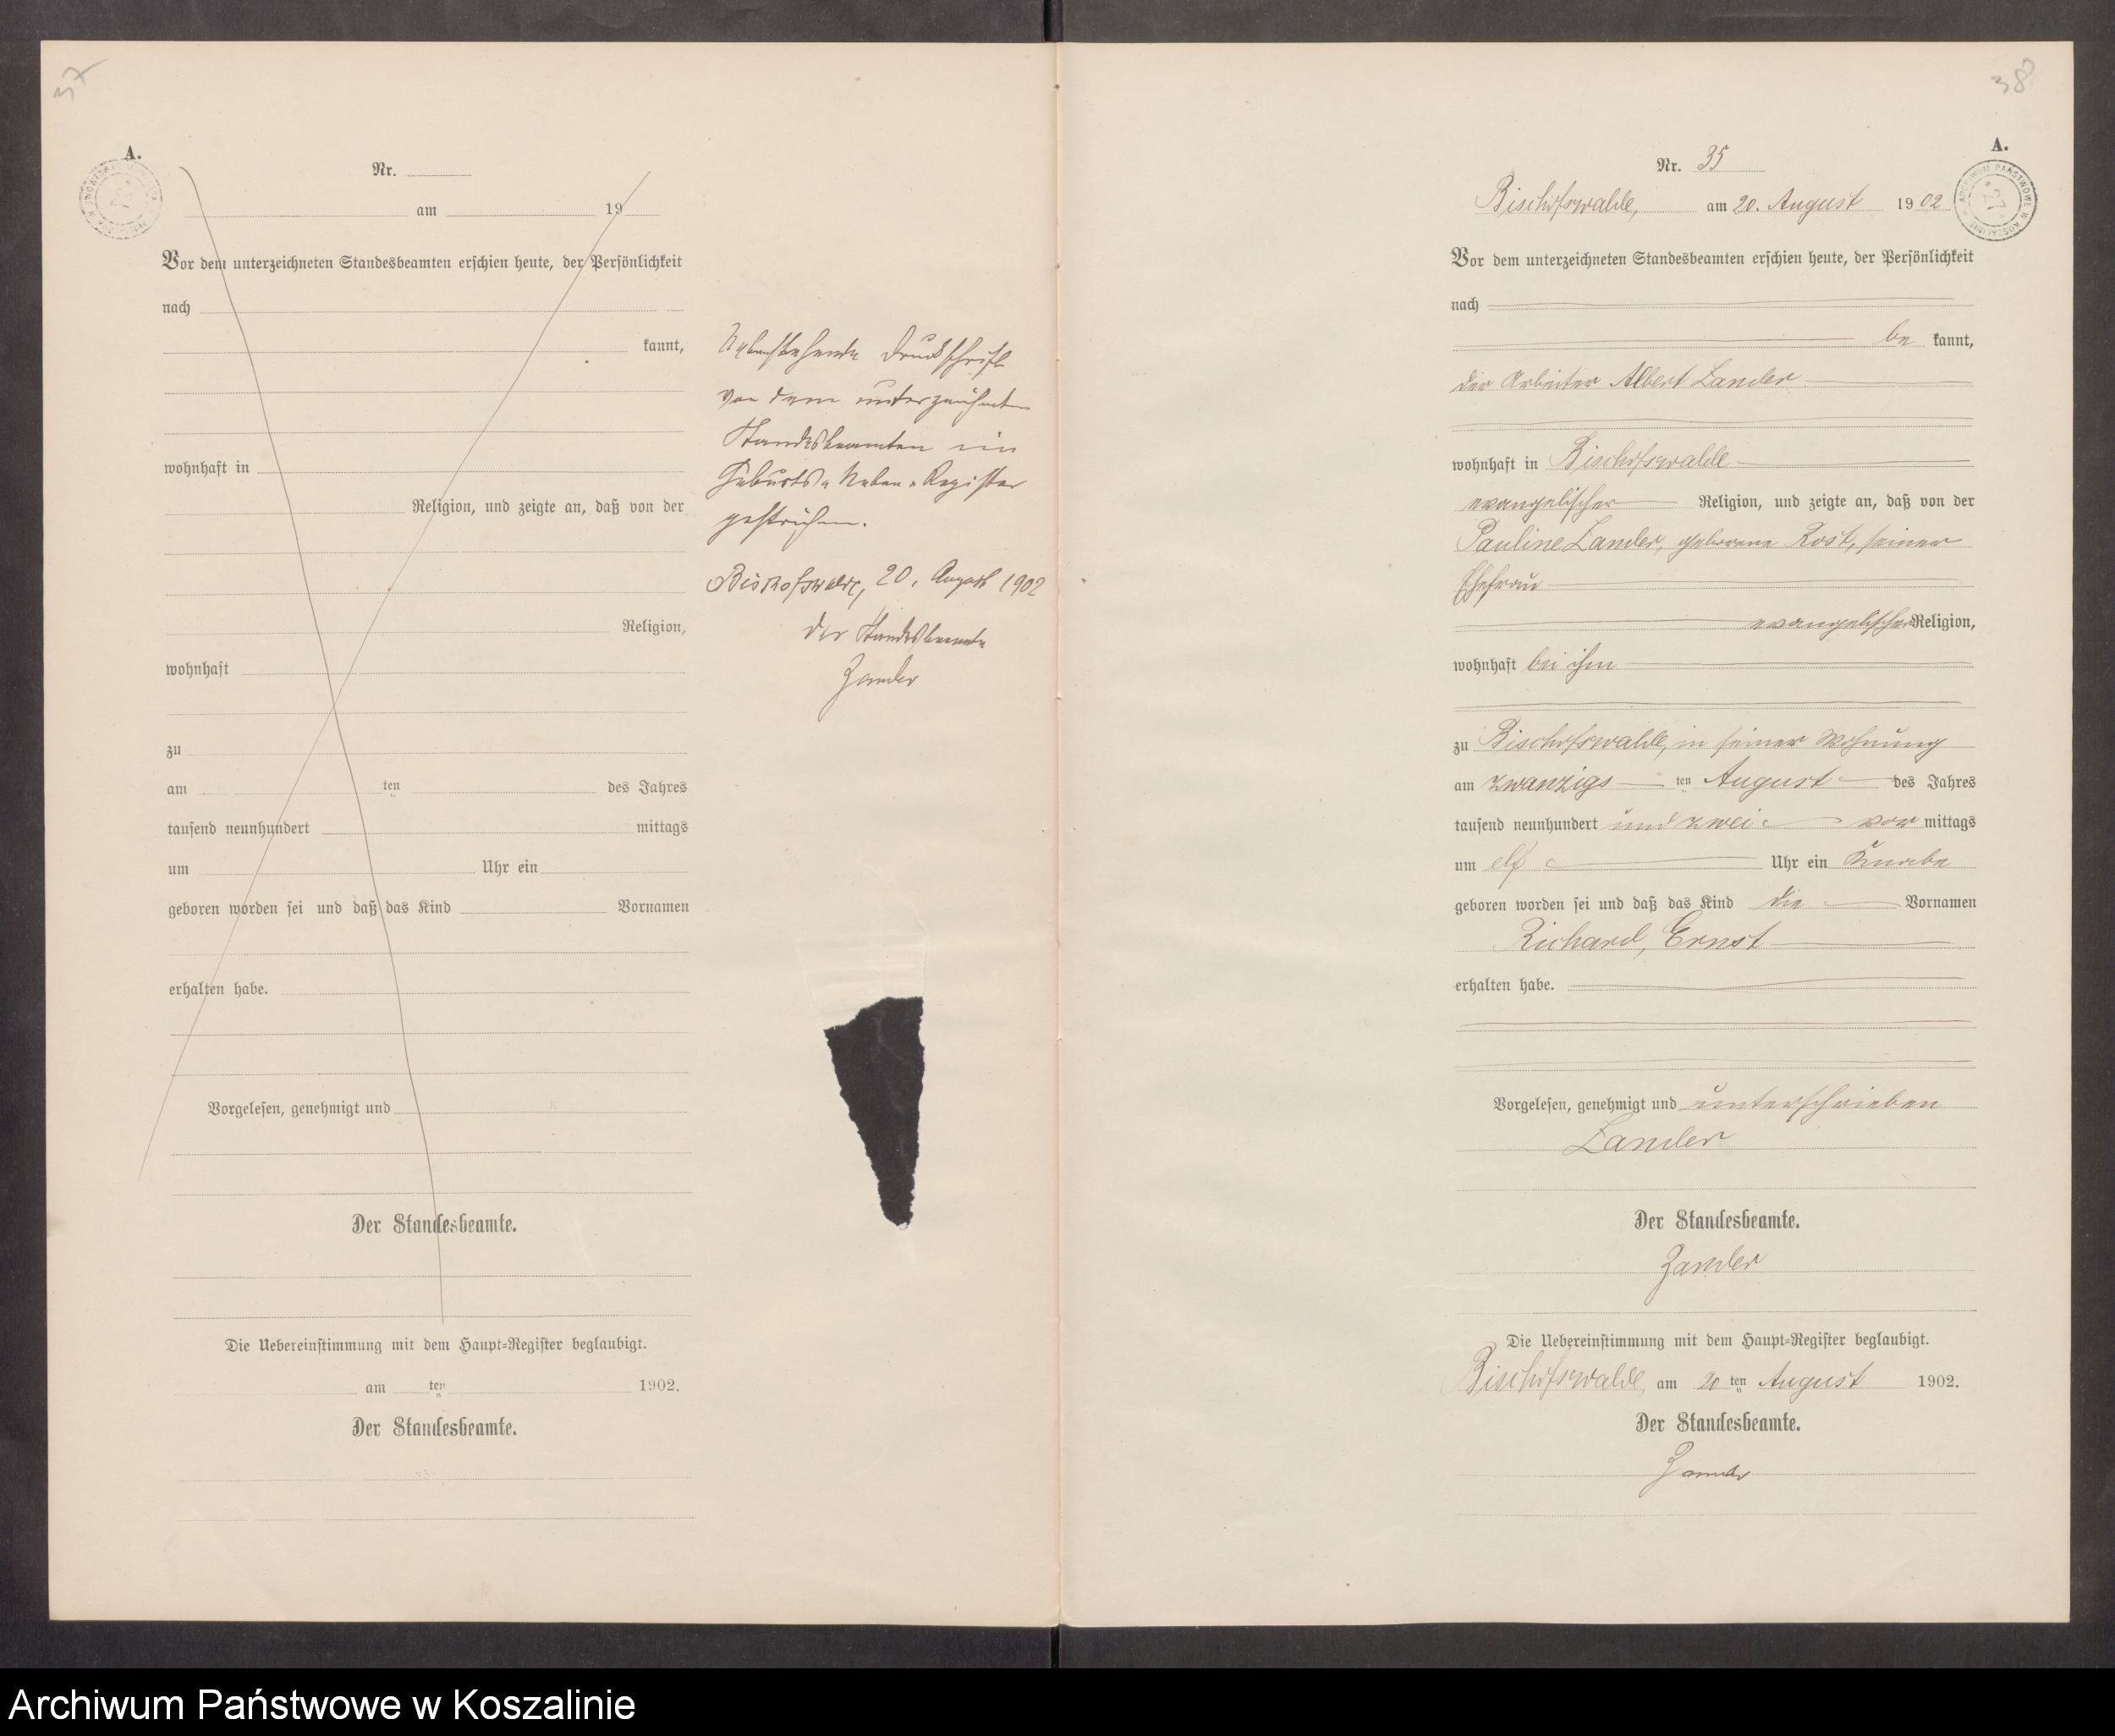 37
A.
Nr.
am 19
Vor dem unterzeichneten Standesbeamten erschien heute, der Persönlichkeit
nach
kannt,
wohnhaft in
Religion, und zeigte an, daß von der
Religion,
wohnhaft
zu
am ten des Jahres
tausend neunhundert mittags
um Uhr ein
geboren worden sei und daß das Kind Vornamen
erhalten habe.
Vorgelesen, genehmigt und
Der Standesbeamte.
Die Uebereinstimmung mit dem Haupt=Register beglaubigt.
am ten 1902.
Der Standesbeamte.
Nebenstehende Druckschrift
von dem unterzeichneten
Standesbeamten im
Geburts-Neben-Register
gestrichen.
Bischofswalde, 20. August 1902
Der Standesbeamte
Zander
38
A.
ARCHIWUM PAŃSTWOWE W KOSZALINIE
Nr. 35
Bischofswalde, am 20. August 1902
Vor dem unterzeichneten Standesbeamten erschien heute, der Persönlichkeit
nach
be kannt,
der Arbeiter Albert Lander
wohnhaft in Bischofswalde
evangelischer Religion, und zeigte an, daß von der
Pauline Lander, geborene Rost, seiner
Ehefrau
evangelischer Religion,
wohnhaft bei ihm
zu Bischofswalde, in seiner Wohnung
am zwanzigs ten August des Jahres
tausend neunhundert und zwei vor mittags
um elf Uhr ein Knabe
geboren worden sei und daß das Kind die Vornamen
Richard, Ernst
erhalten habe.
Vorgelesen, genehmigt und unterschrieben
Lander
Der Standesbeamte.
Zander
Die Uebereinstimmung mit dem Haupt=Register beglaubigt.
Bischofswalde, am 20 ten August 1902.
Der Standesbeamte.
Zander
Archiwum Państwowe w Koszalinie